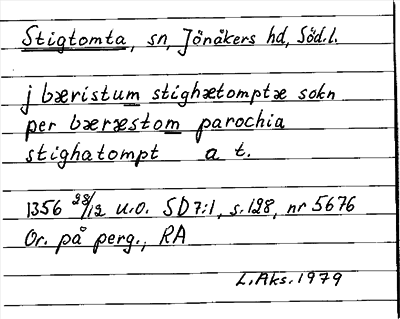 Stigtomta, sn, Jönåkers hd, Söd.l.
j bæristum stighætomptæ sokn
per bæræstom parochia
stighatompt a t.
1356 28/12 u.o. SD 7:1, s. 128, nr 5676
Or. på perg., RA
L. Aks. 1979